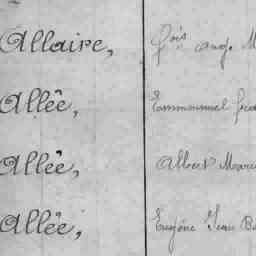 Allaire, fois ange M
Allée, Emmanuel
Allée, Albert Marce
Allée, Eugène Jean Ba